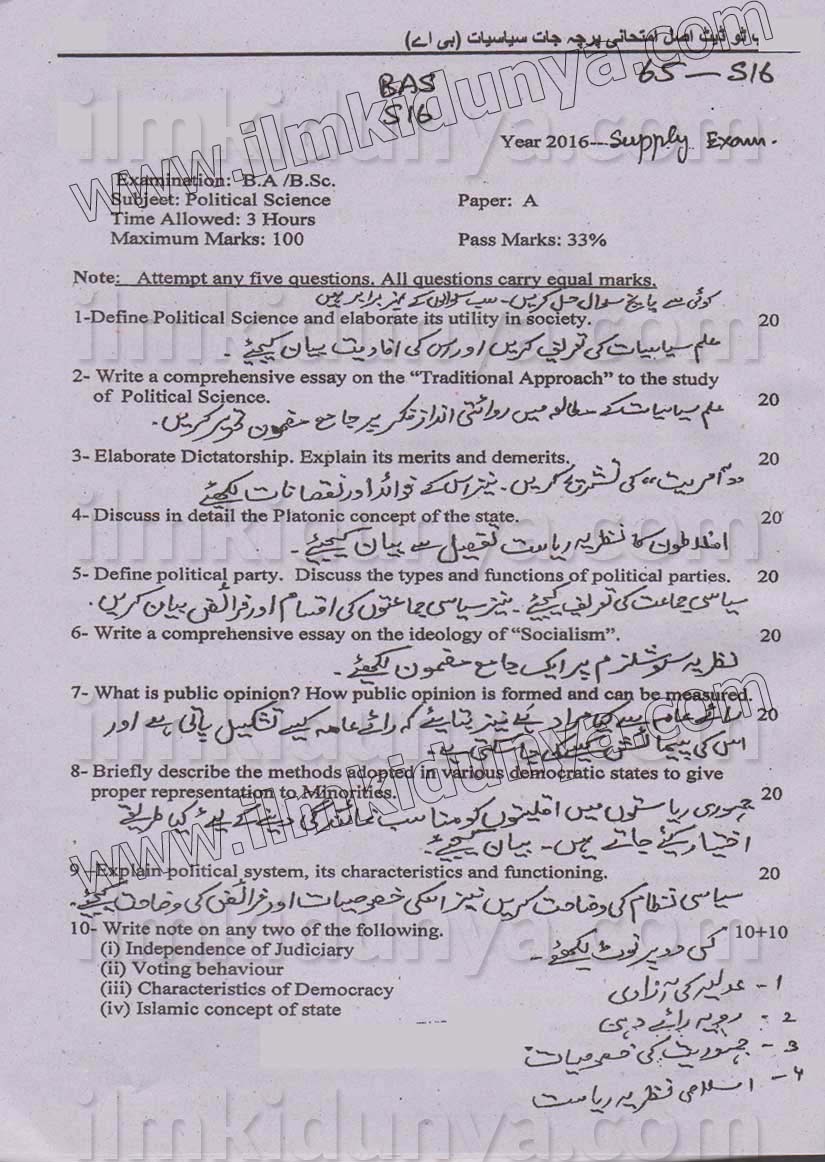 ٹو ڈیٹ اصل امتحانی پرچہ جات سیاسیات (بی اے)
BAS 65-S16
S16
Year 2016---Supply Exam.
Examination: B.A /B.Sc.
Subject: Political Science Paper: A
Time Allowed: 3 Hours
Maximum Marks: 100 Pass Marks: 33%
Note: Attempt any five questions. All questions carry equal marks.
کوئی سے پانچ سوال حل کریں۔ سب سوالوں کے نمبر برابر ہیں
1-Define Political Science and elaborate its utility in society. 20
علم سیاسیات کی تعریف کریں اور اس کی افادیت بیان کیجئے۔
2- Write a comprehensive essay on the “Traditional Approach” to the study
of Political Science. 20
علم سیاسیات کے مطالعہ میں روائتی انداز فکر پر جامع مضمون تحریر کریں۔
3- Elaborate Dictatorship. Explain its merits and demerits. 20
"آمریت" کی تشریح کریں۔ نیز اس کے فوائد اور نقصانات لکھئے
4- Discuss in detail the Platonic concept of the state. 20
افلاطون کا نظریہ ریاست تفصیل سے بیان کیجیئے۔
5- Define political party. Discuss the types and functions of political parties. 20
سیاسی جماعت کی تعریف کیجئے۔ نیز سیاسی جماعتوں کی اقسام اور فرائض بیان کریں۔
6- Write a comprehensive essay on the ideology of “Socialism”. 20
نظریہ سوشلزم پر ایک جامع مضمون لکھیئے۔
7- What is public opinion? How public opinion is formed and can be measured.
رائے عامہ سے کیا مراد ہے نیز بتایئے کہ رائے عامہ کیسے تشکیل پاتی ہے اور 20
اس کی پیمائش کیسے کی جا سکتی ہے۔
8- Briefly describe the methods adopted in various democratic states to give
proper representation to Minorities. 20
جمہوری ریاستوں میں اقلیتوں کو مناسب نمائندگی دینے کے لیئے کیا طریقے
اختیار کیئے جاتے ہیں۔ بیان کیجیئے
9-Explain political system, its characteristics and functioning. 20
سیاسی نظام کی وضاحت کریں نیز اسکی خصوصیات اور فرائض کی وضاحت کیجیئے۔
10- Write note on any two of the following. 10+10
کسی دو پر نوٹ لکھیئے۔
(i) Independence of Judiciary
(ii) Voting behaviour
(iii) Characteristics of Democracy
(iv) Islamic concept of state
1- عدلیہ کی آزادی
2- رویہ رائے دہی
3- جمہوریت کی خصوصیات
4- اسلامی نظریہ ریاست
www.ilmkidunya.com
www.ilmkidunya.com
ilmkidunya.com
ilmkidunya.com
ilmkidunya.com
ilmkidunya.com
ilmkidunya.com
ilmkidunya.com